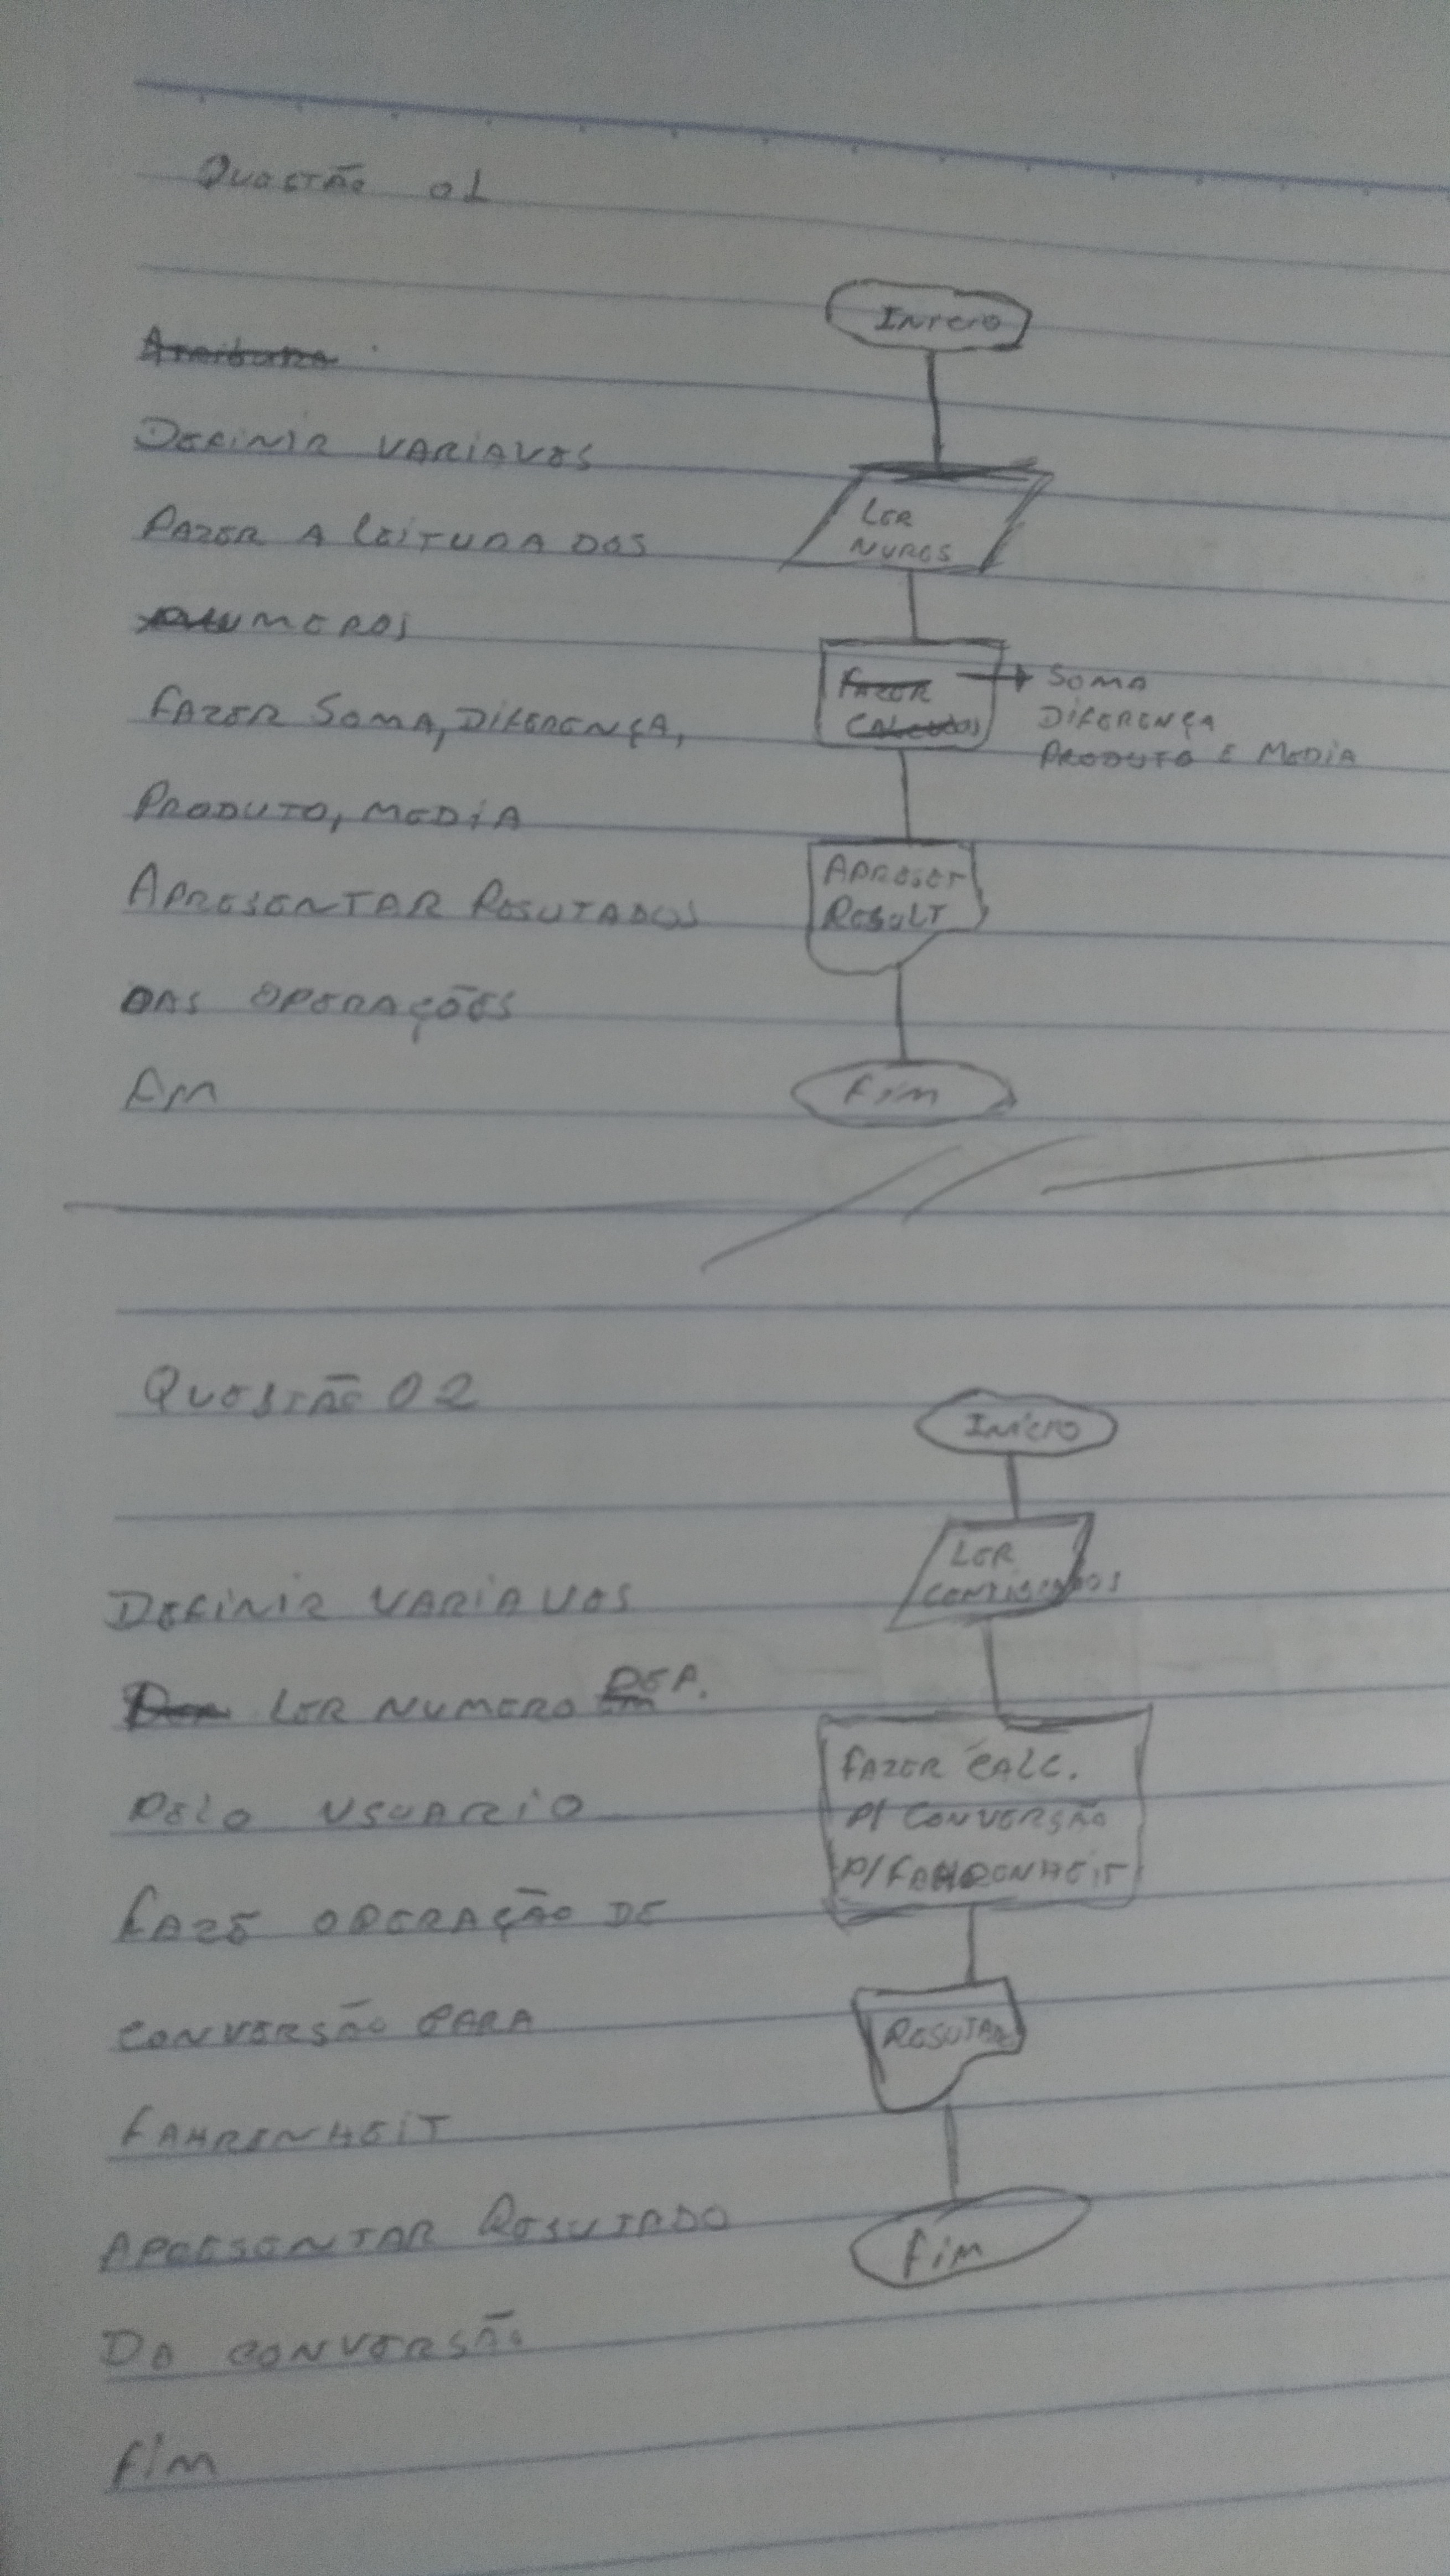 Questão 01
Início
Definir variaves
Fazer a leitura dos
numeros
Fazer soma, diferença,
Produto, media
Apresentar Resutados
das operações
Fim
Ler
Nuros
Fazer
Calculos
Soma
Diferença
Produto e media
Apreset
Result
Fim
Questão 02
Definir variaves
Ler numero
pelo usuario
Fazê operação de
conversão para
Fahrenheit
Apresentar Resutado
Do conversão
Fim
Início
Ler
Fazer calc.
p/ conversão
p/ Fahrenheit
Fim